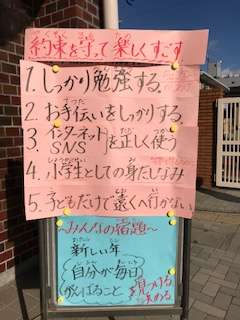 約束を守って楽しくすごす
1.しっかり勉強する
2.お手伝いをしっかりする
3.インターネット
SNSを正しく使う
4.小学生としての身だしなみ
5.子どもだけで遠くへ行かない
～みんなの宿題～
新しい年
自分が毎日
がんばること
見つける
決める